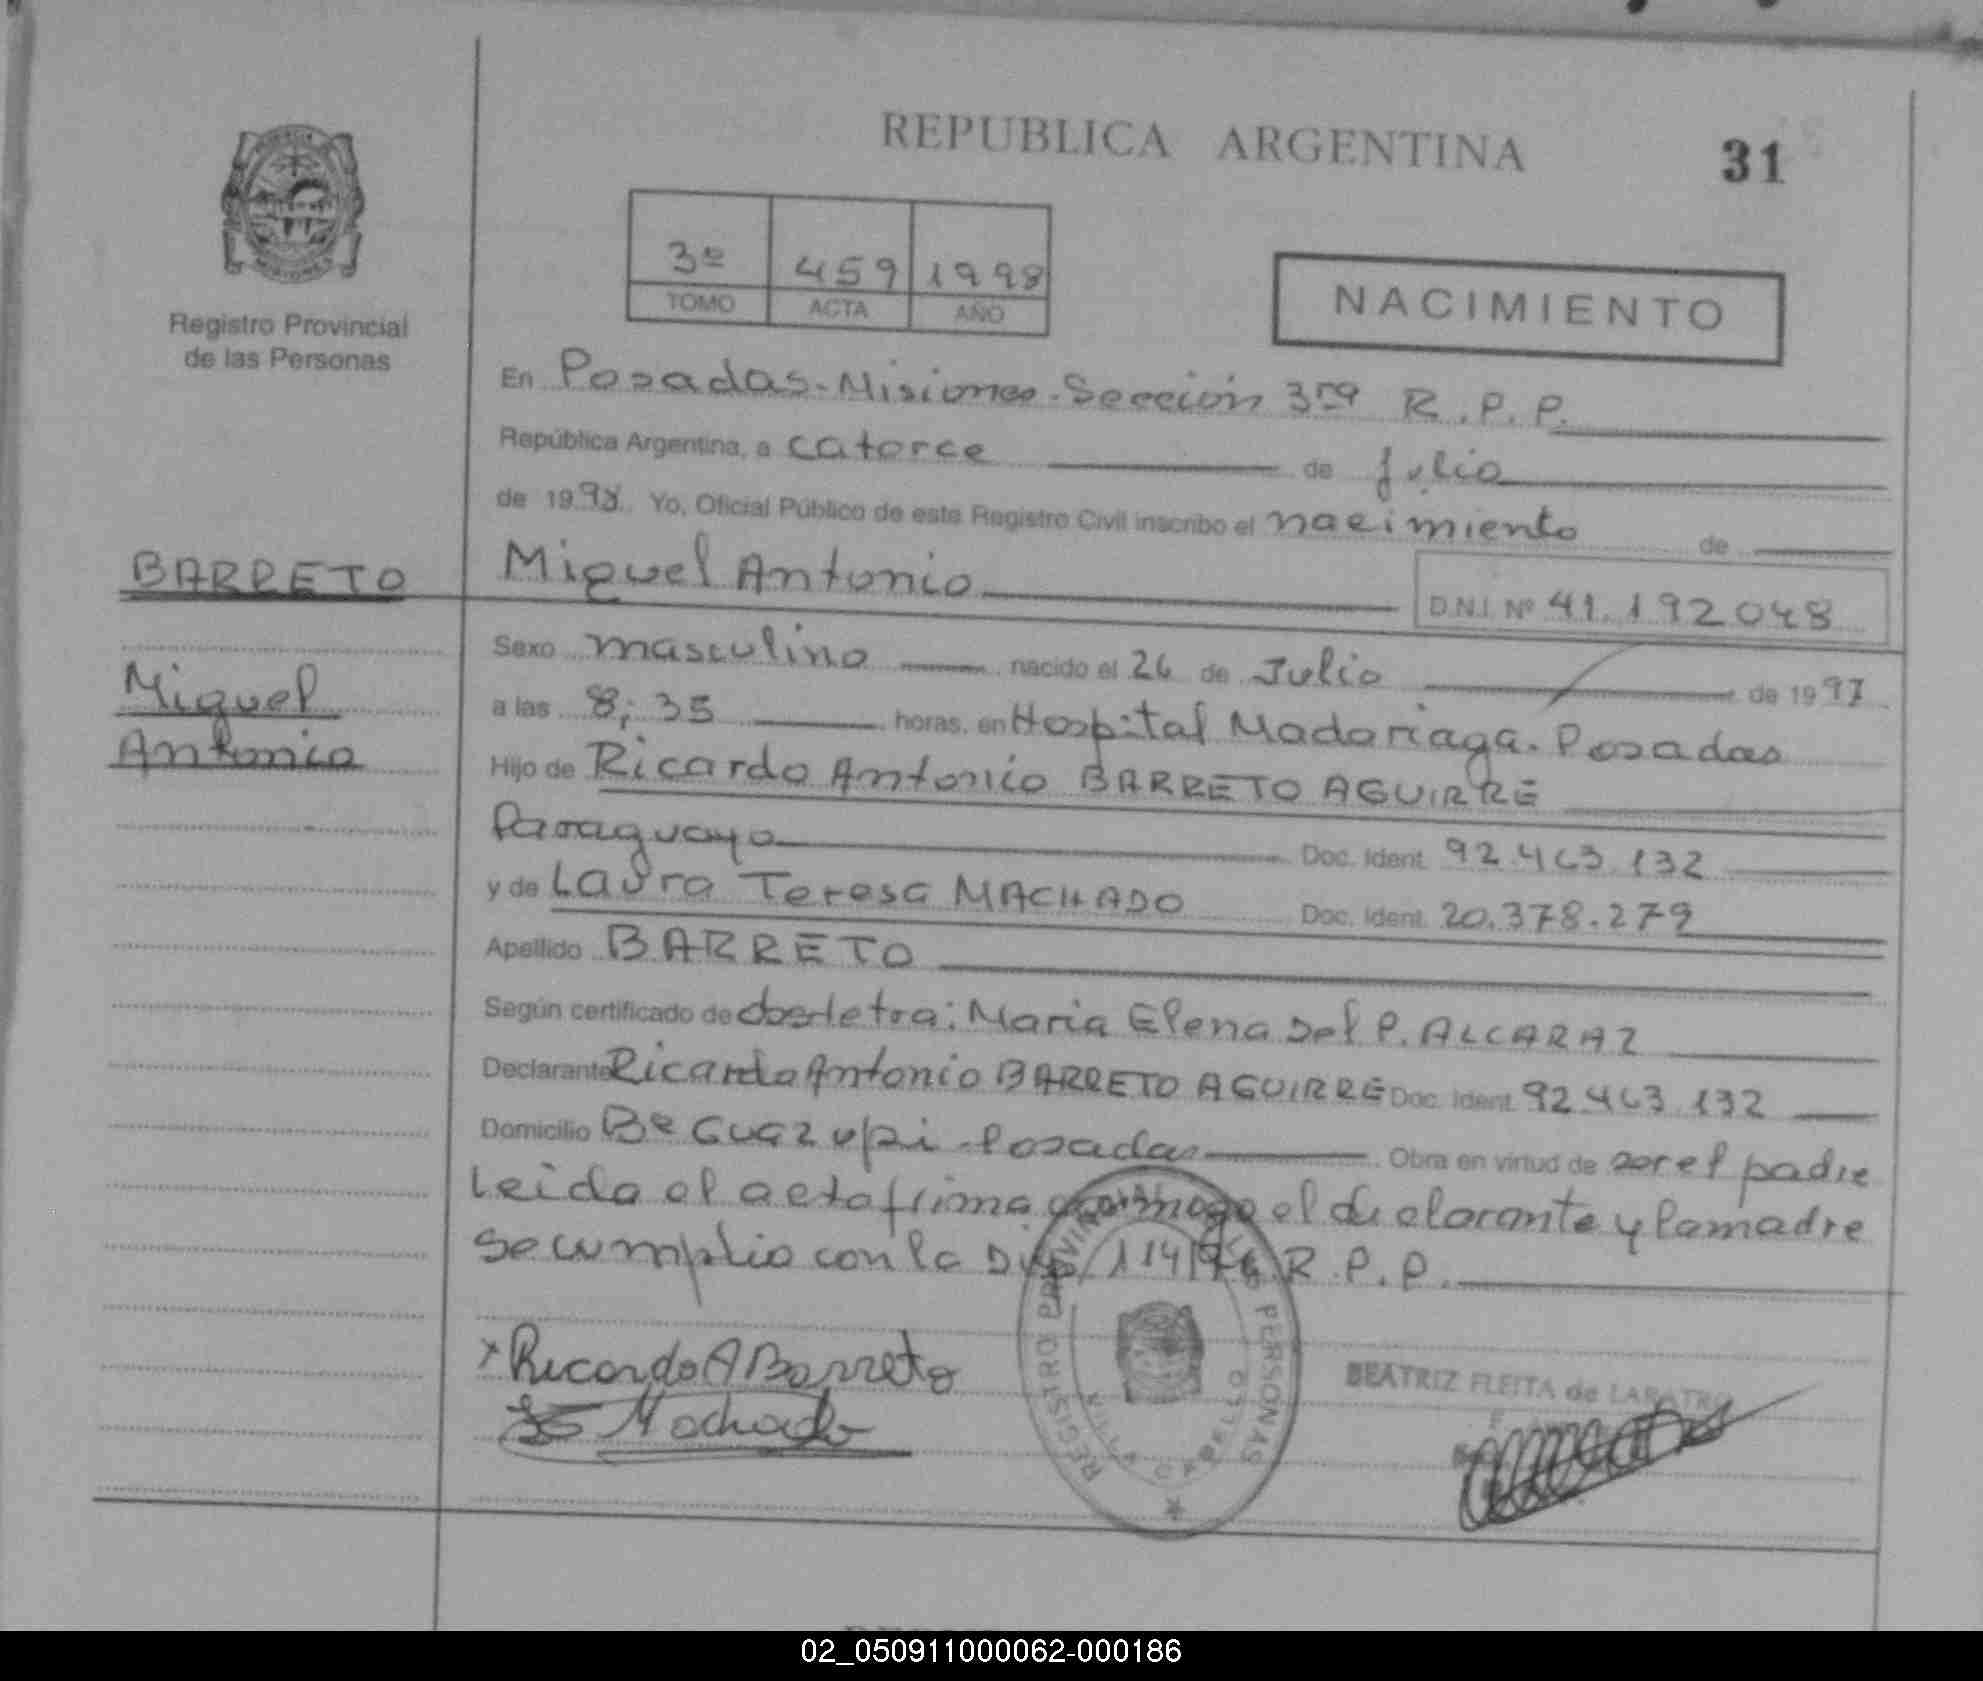 REPUBLICA ARGENTINA
31
Registro Provincial
de las Personas
3º 459 1998
TOMO ACTA AÑO
NACIMIENTO
En Posadas-Misiones-Sección 3ra R.P.P.
República Argentina, a catorce de Julio
de 1998. Yo, Oficial Público de este Registro Civil inscribo el nacimiento de
BARRETO
Miguel Antonio
D.N.I. Nº 41.192048
Miguel
Antonio
Sexo masculino nacido el 26 de Julio de 1997
a las 8;35 horas, en Hospital Madariaga. Posadas
Hijo de Ricardo Antonio BARRETO AGUIRRE
Paraguayo Doc. Ident. 92.463.132
y de Laura Teresa MACHADO Doc. Ident. 20.378.279
Apellido BARRETO
Según certificado de Obstetra: Maria Elena Del P. ALCARAZ
Declarante Ricardo Antonio BARRETO AGUIRRE Doc. Ident. 92.463.132
Domicilio Bº Guazupi-Posadas Obra en virtud de ser el padre
Leida el acta firma conmigo el declarante y la madre
Se cumplio con la Disp. 114/96 R.P.P.
REGISTRO PROVINCIAL DE LAS PERSONAS
x Ricardo A Barreto
Machado
BEATRIZ FLEITA de LABATRO
02_050911000062-000186